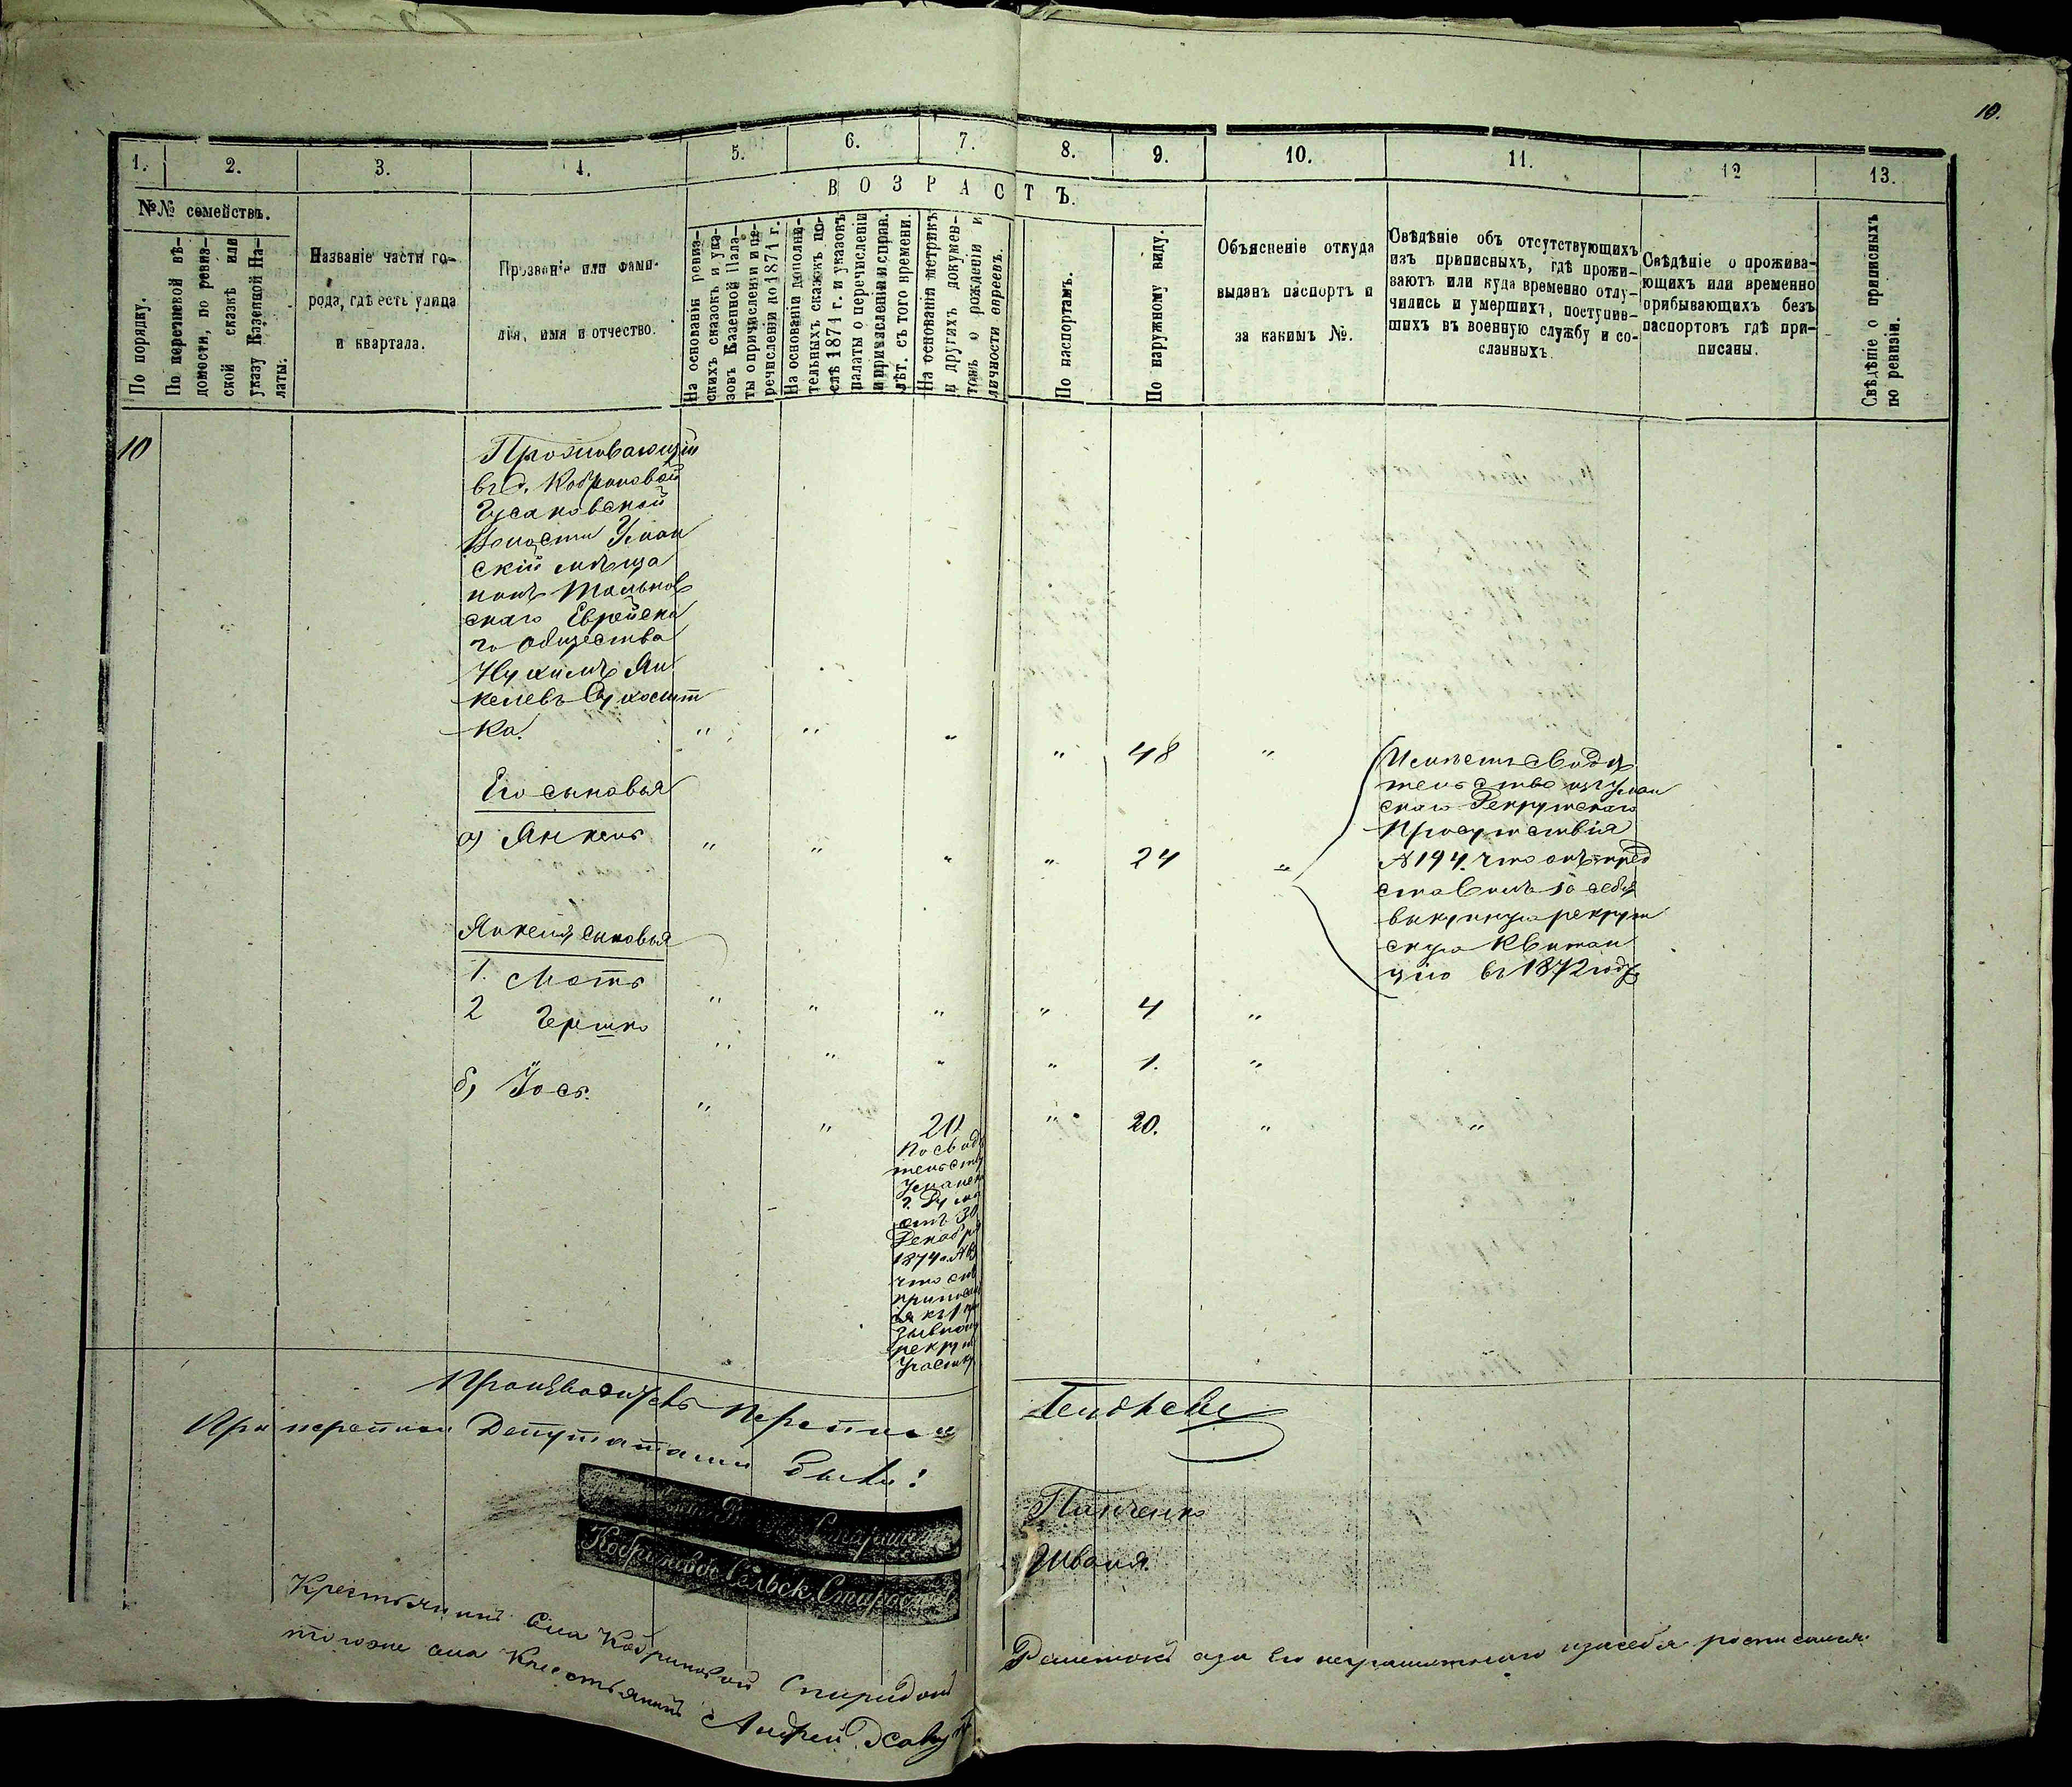 10.
1.
2.
3.
4.
5.
6.
7.
8.
9.
10.
11.
12
13.
№№ семействъ.
По порядку.
По перечневой вѣ-
домости, по ревиз-
ской сказкѣ или
указу Казенной Па-
латы.
Названіе части го-
рода, гдѣ есть улица
и квартала.
Прозваніе или фами-
лія, имя и отчество.
ВОЗРАСТЪ.
На основаніи ревиз-
скихъ сказокъ и ука-
зовъ Казенной Пала-
ты о причисленіи и пе-
речисленіи до 1871 г.
На основаніи дополни-
тельныхъ сказокъ по-
слѣ 1871 г. и указовъ
палаты о перечисленіи
и причисленіи и справ.
лѣт. съ того времени.
На основаніи метрикъ
и другихъ докумен-
товъ о рожденіи и
личности евреевъ.
По паспортамъ.
По наружному виду.
Объясненіе откуда
выданъ паспортъ и
за какимъ №.
Свѣдѣніе объ отсутствующихъ
изъ приписныхъ, гдѣ прожи-
ваютъ или куда временно отлу-
чились и умершихъ, поступив-
шихъ въ военную службу и со-
сланныхъ.
Свѣдѣніе о прожива-
ющихъ или временно
прибывающихъ безъ
паспортовъ гдѣ при-
писаны.
Свѣдѣніе о приписныхъ
по ревизіи.
10
Проживающій
въ д. Кобриновой
Гусаковской
Волости Уман
скій мѣща
нинъ Тальнов
скаго Еврейска
го общества
Нухимъ Ян
келевъ
ка. " " " " 48 "
Его сыновья
а) Янкель " " " " 24 "
Имѣетъ свидѣ
тельство изъ Уман
скаго Рекрутскаго
Присутствія
№ 194. что онъ пред
ставилъ за себя
выкупную рекрут
скую квитан
цію въ 1872 году
Янкеля сыновья
1. Моть " " " " 4 "
2 Гершко " " " " 1. "
б) Іось. " " 20 " 20. " "
По свидѣ
тельству
Уманск
г. Думы
отъ 30
Декабря
1874 г.
что онъ
приписан
ся къ 1 при
зывному
рекрут
участку
Производитель переписи
При переписи Депутатами были:
Волостн. Старшина
Панченко
Кобриновое Сельск. Староста
Шваня.
Крестьянинъ села Кобриновой Спиридонъ
того же села Крестьянинъ Андрей
а за его неграмотнаго и за себя росписался